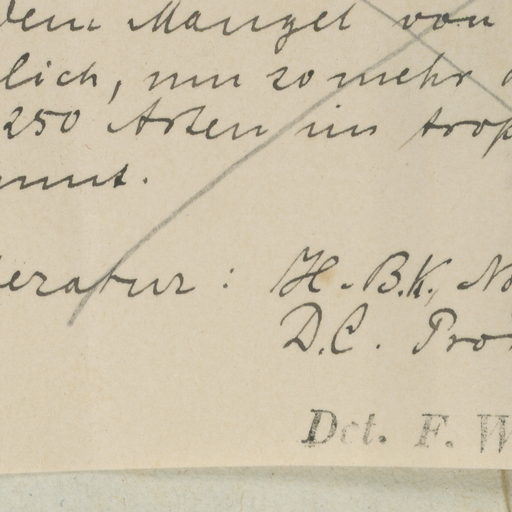 dem Mangel von
lich, um so mehr
250 Arten im trop
nnt.
eratur: H.B.K., No
D.C. Pro
Det. F. W